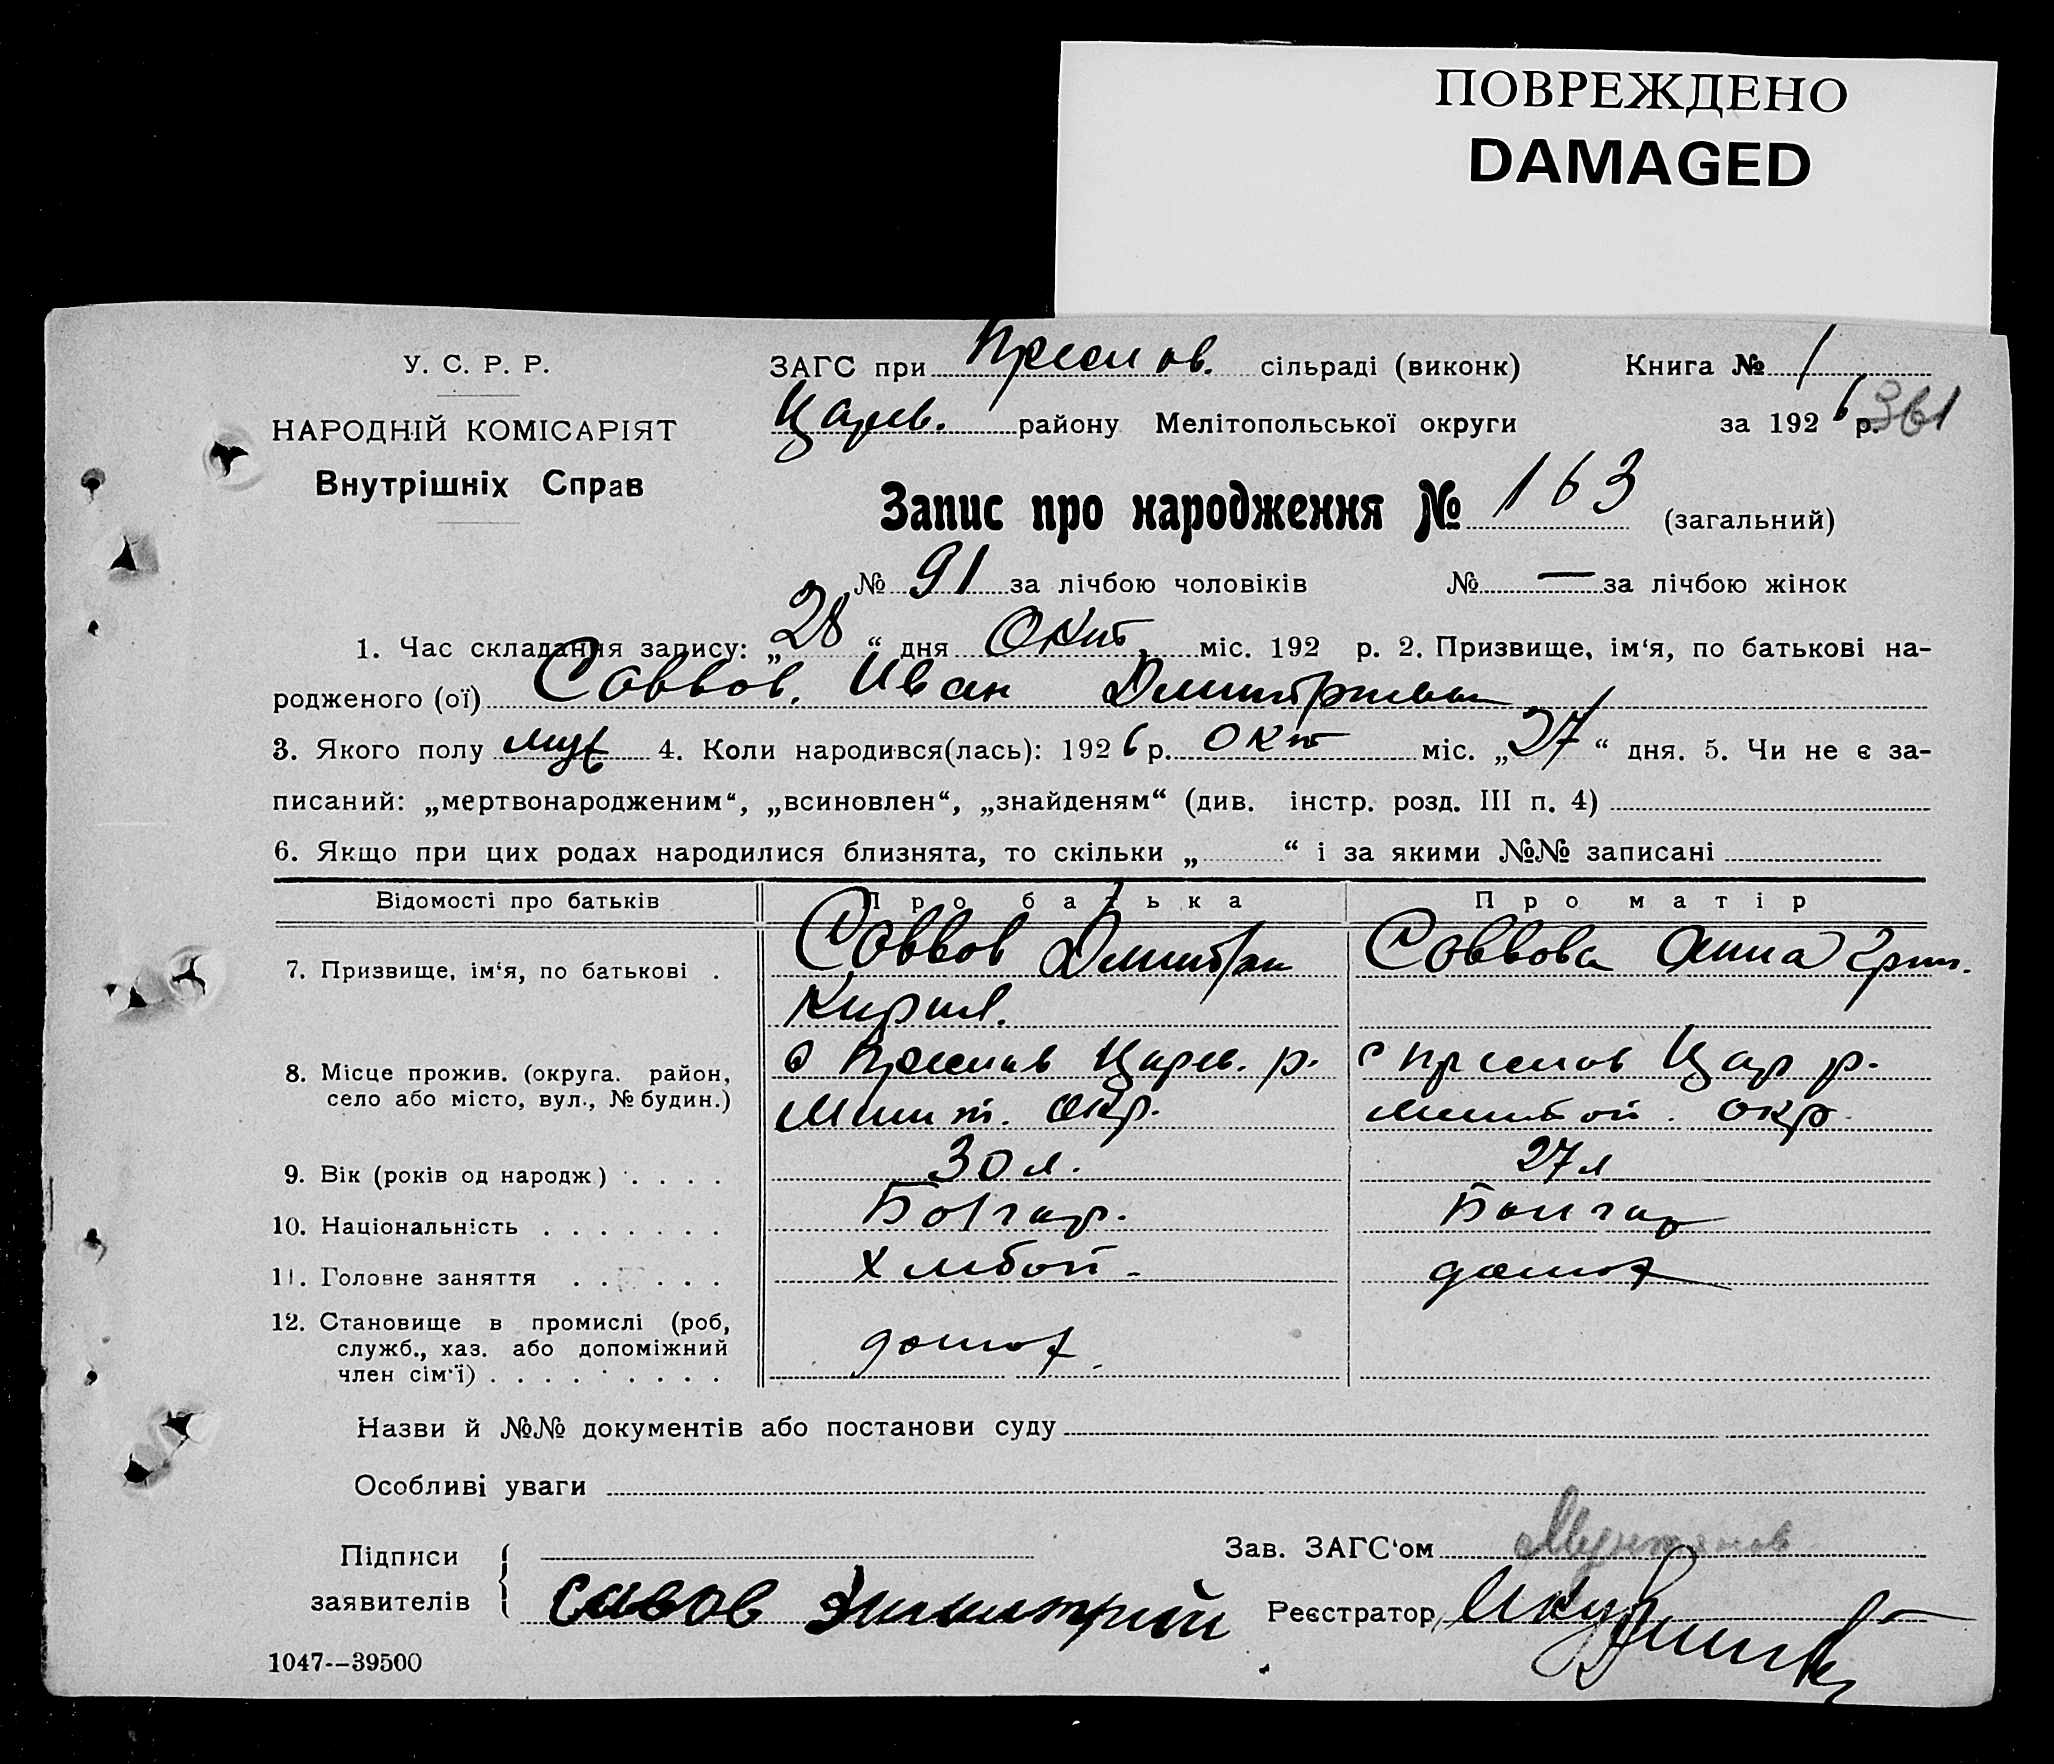 ПОВРЕЖДЕНО
DAMAGED
У. С. Р. Р.
НАРОДНІЙ КОМІСАРІЯТ
Внутрішніх Справ
ЗАГС при Преслав. сільраді (виконк) Книга № 1
Царев. району Мелітопольської округи за 1926 р. 361
Запис про народження № 163 (загальний)
№ 91 за лічбою чоловіків № — за лічбою жінок
1. Час складання запису: „28“ дня Окт. міс. 192 р. 2. Призвище, ім‘я, по батькові на-
родженого (ої) Саввов. Иван Дмитриевич
3. Якого полу муж 4. Коли народився(лась): 1926 р. окт міс. „27“ дня. 5. Чи не є за-
писаний: „мертвонародженим“, „всиновлен“, „знайденям“ (див. інстр. розд. III п. 4)
6. Якщо при цих родах народилися близнята, то скільки „ “ і за якими №№ записані
Відомості про батьків Про батька Про матір
7. Призвище, ім‘я, по батькові . Саввов Дмитрий Саввова Анна Григ.
Кирил.
8. Місце прожив. (округа. район, с Преслав Царев. р. с Преслав Цар р.
село або місто, вул., № будин.) Мелит. окр. Мелитоп. окр
9. Вік (років од народж) . . . . 30 л. 27 л
10. Національність . . . . . . . Болгар. Болгар
11. Головне заняття . . . . . . хлебоп. домох
12. Становище в промислі (роб,
служб., хаз. або допоміжний домох.
член сім‘ї) . . . . . . . . .
Назви й №№ документів або постанови суду
Особливі уваги
Підписи Зав. ЗАГС‘ом
заявителів Савов Димитрий Реєстратор
1047--39500